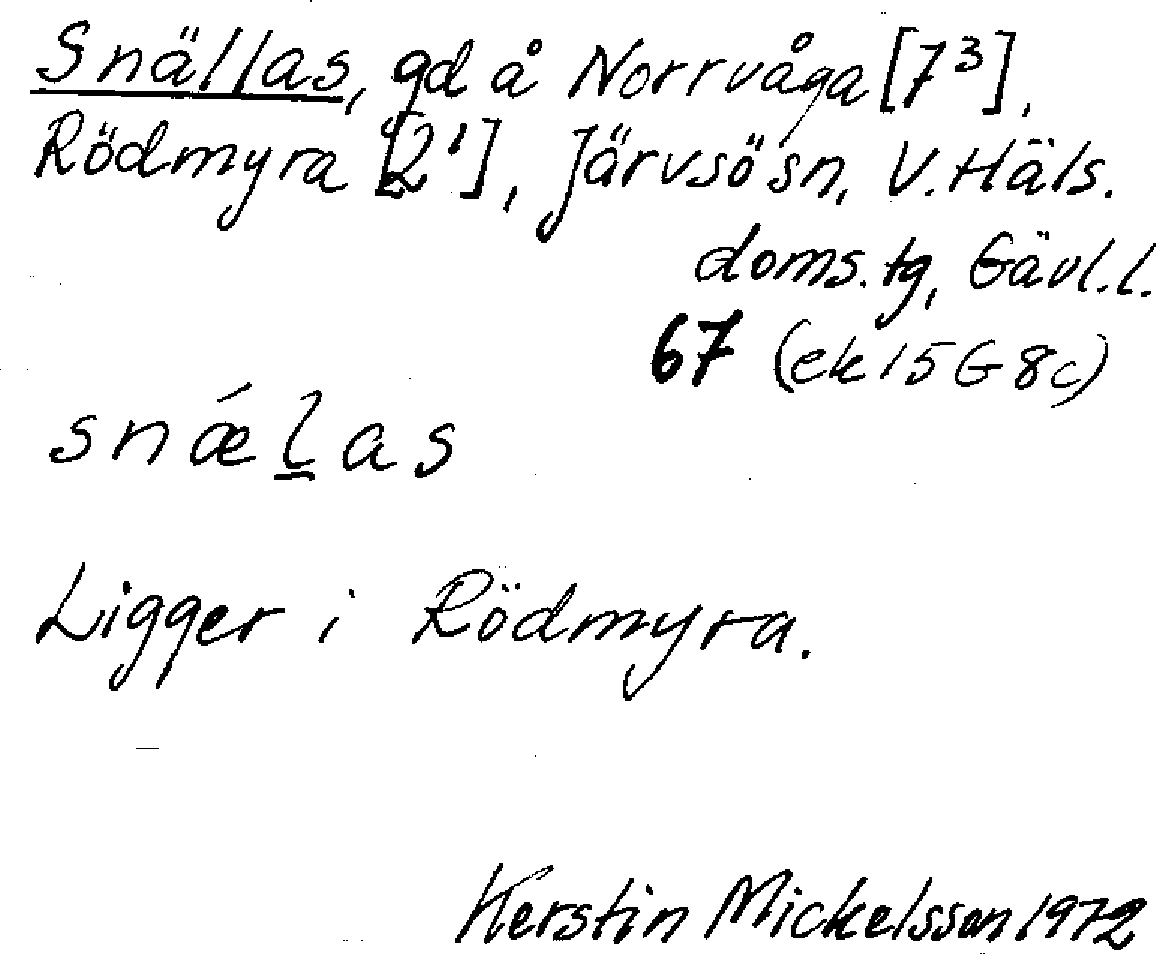 Snällas, gd å Norrvåga [7³],
Rödmyra [2¹], Järvsö sn, V. Häls.
doms. tg, Gävl. l.
67 (ek 15 G 8c)
snǽl̲as
Ligger i Rödmyra.
Kerstin Mickelsson 1972